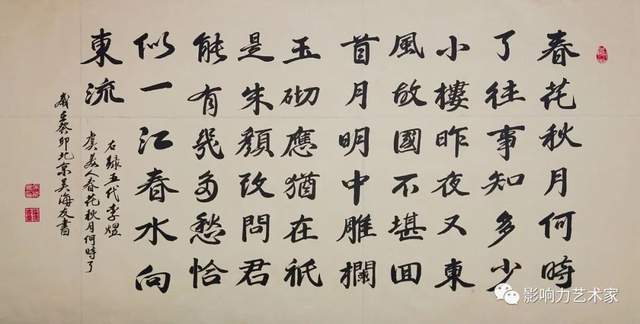 春花秋月何時
了往事知多少
小樓昨夜又東
風故國不堪回
首月明中雕欄
玉砌應猶在祇
是朱顏改問君
能有幾多愁恰
似一江春水向
東流
右録五代李煜
虞美人春花秋月何時了
歲在癸卯北京吴海友書
影响力艺术家